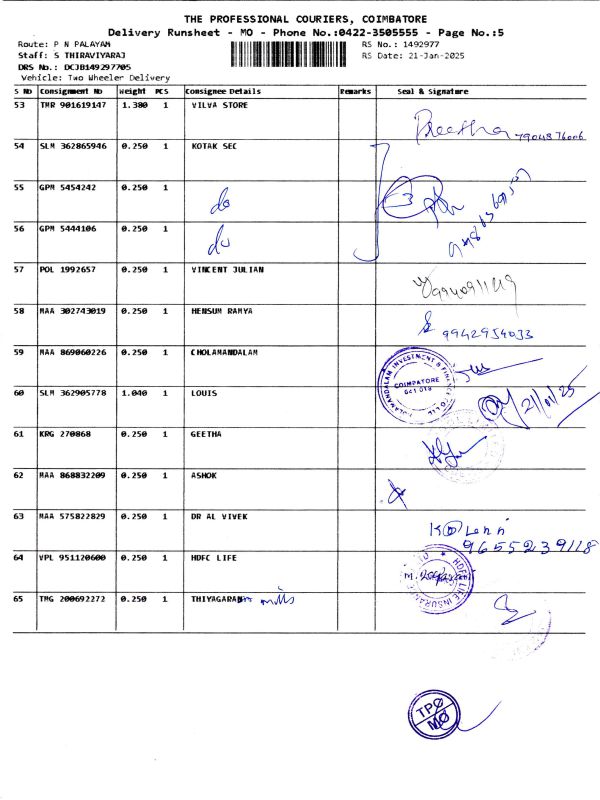 THE PROFESSIONAL COURIERS, COIMBATORE
Delivery Runsheet - MO - Phone No.:0422-3505555 - Page No.:5
Route: P N PALAYAM RS No.: 1492977
Staff: S THIRAVIYARAJ RS Date: 21-Jan-2025
DRS No.: DCJB149297705
Vehicle: Two Wheeler Delivery
S No Consignment No Weight PCS Consignee Details Remarks Seal & Signature
53 TMR 901619147 1.380 1 VILVA STORE
Preetha 7904876006
54 SLM 362865946 0.250 1 KOTAK SEC
55 GPM 5454242 0.250 1
do
56 GPM 5444106 0.250 1
do
57 POL 1992657 0.250 1 VINCENT JULIAN
58 MAA 302743019 0.250 1 HENSUM RAMYA
9942954033
59 MAA 869060226 0.250 1 CHOLAMANDALAM
CHOLAMANDALAM INVESTMENT & FINANCE CO LTD
COIMPATORE
641 018
60 SLM 362905778 1.040 1 LOUIS
21/01/25
61 KRG 270868 0.250 1 GEETHA
62 MAA 868832209 0.250 1 ASHOK
63 MAA 575822829 0.250 1 DR AL VIVEK
9655239118
64 VPL 951120600 0.250 1 HDFC LIFE
HDFC LIFE INSURANCE
65 TMG 200692272 0.250 1 THIYAGARAJ mills
TPO
MO